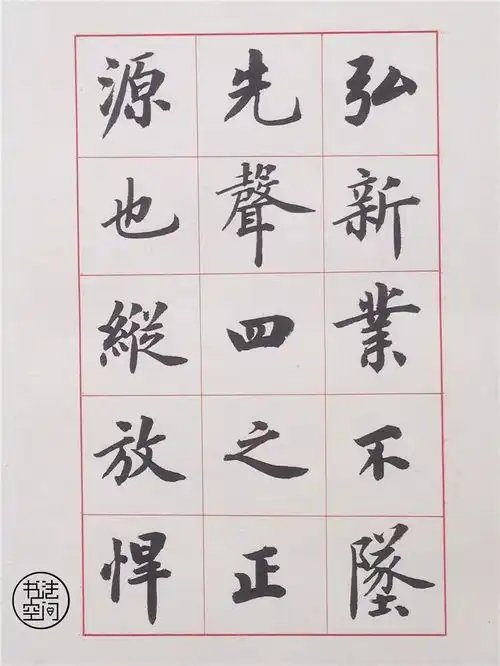 弘新業不墜
先聲四之正
源也縱放悍
书法空间